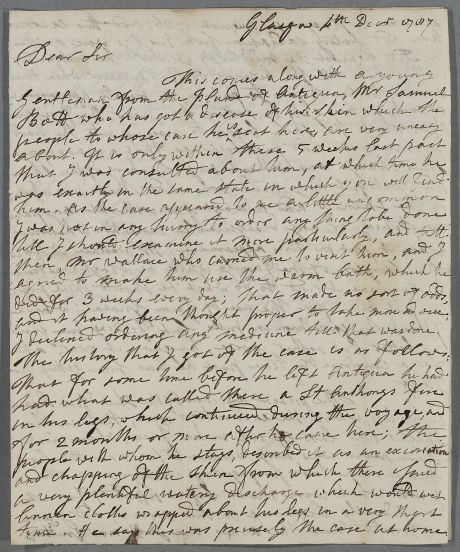 Glasgow 4th Decr 1787
Dear Sir
This comes along with a young
Gentleman from the Island of Antigua, Mr Samuel
Bott who has got a disease of his skin which the
people to whose care he is sent here, are very uneasy
about. It is only within these 5 weeks last past
that I was consulted about him, at which time he
was exactly in the same state in which you will find
him. As the case appeared to me a little uncommon
I was not in any hurry to order any thing to be done
till I should examine it more particularly, and till
then, Mr Wallace who carried me to visit him, and I
agreed to make him use the warm bath, which he
did for 3 weeks every day; that made no sort of odds,
and it having been thought proper to take more advice,
I declined ordering any medicine till that was done.
The history that I got of the case is as follows:
That for some time before he left Antigua he had
had what was called there a St Anthonys fire
in his legs, which continued during the voyage, and
for 2 months or more after he came here; the
people with whom he stays, described it as an excoriation
and chapping of the skin from which there issued
a very plentiful watery discharge which would wet
linnen cloths wrapped about his legs in a very short
time. He says this was precisely the case at home